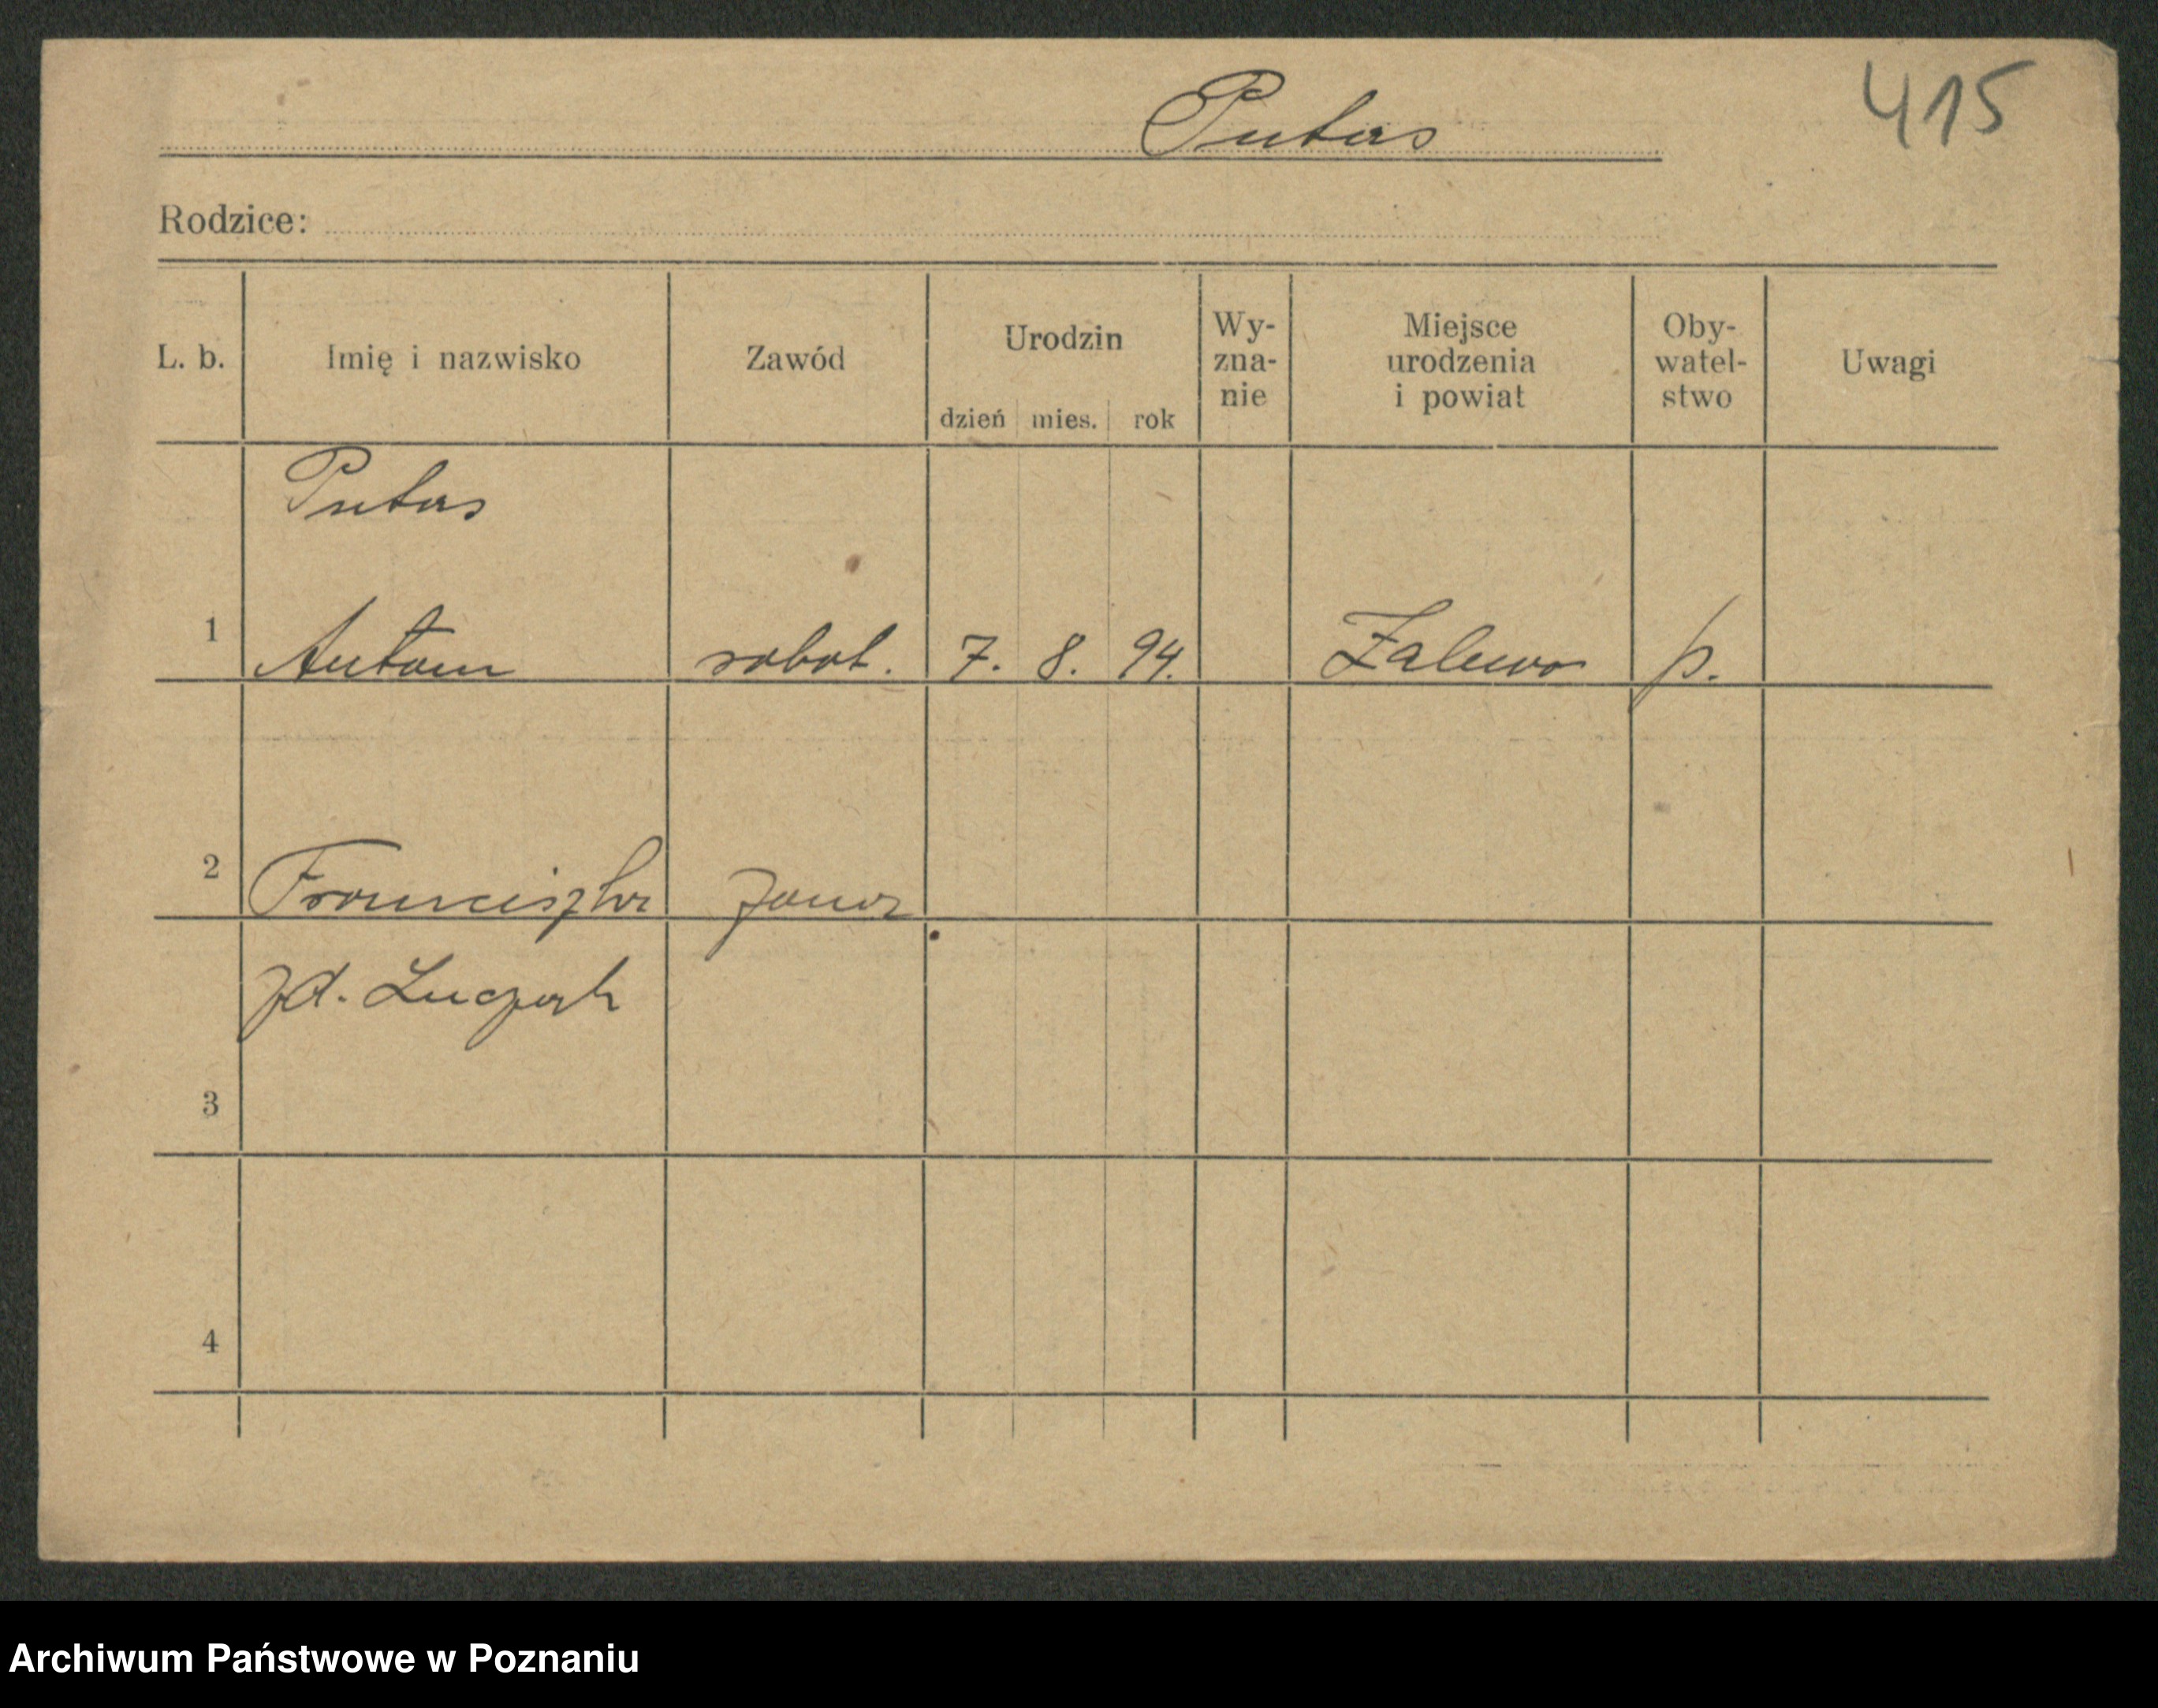 Putas
415
Rodzice:
L. b. Imię i nazwisko Zawód Urodzin dzień mies. rok Wy-zna-nie Miejsce urodzenia i powiat Oby-watel-stwo Uwagi
Putas
1 Antoni robot. 7. 8. 94. Zalewo p.
2 Franciszka żona
zd. Luczak
3
4
Archiwum Państwowe w Poznaniu